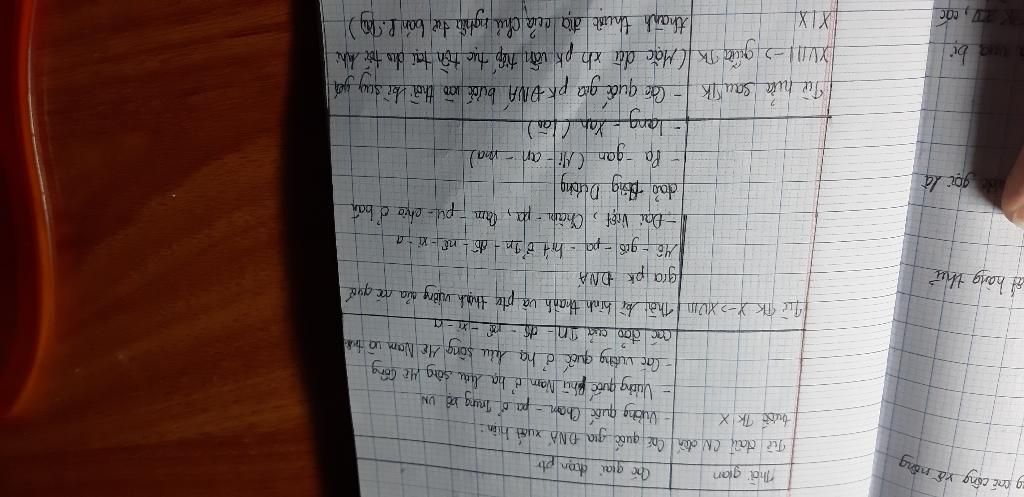 Thời gian | Các giai đoạn ptr
Từ đầu CN đến | Các quốc gia ĐNÁ xuất hiện:
trước TK X | Vương quốc Cham-pa ở Trung bộ VN
- Vương quốc Phù Nam ở hạ lưu sông Mê Công
- Các vương quốc ở hạ lưu sông Mê Nam và trên
các đảo của In-đô-nê-xi-a
Từ TK X -> XVIII | Thời kì hình thành và ptr thịnh vượng của các quốc
gia pk ĐNÁ
Mô-giô-pa-hít ở In-đô-nê-xi-a
- Đại Việt, Chăm-pa, Cam-pu-chia ở bán
đảo Đông Dương
- Pa-gan (Mi-an-ma)
- Lang-Xan (Lào)
Từ nửa sau TK | - Các quốc gia pk ĐNÁ bước vào thời kì suy yếu
XVIII -> giữa TK | (Mặc dù xh pk vẫn tiếp tục tồn tại cho tới khi
XIX | thành thuộc địa của chủ nghĩa tư bản P. Tây)
gọi là
hàng thủ
công xã nông